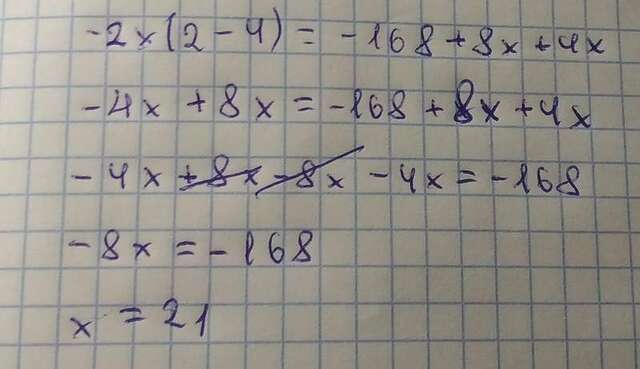 -2x(2-4) = -168+8x+4x
-4x+8x=-168+8x+4x
-4x+8x-8x-4x=-168
-8x=-168
x=21